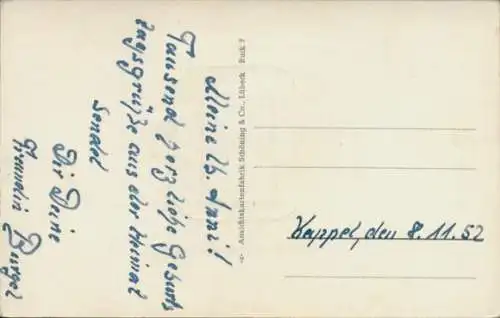 Meine lb. Anni!
Tausend herzliche Geburts
tagsgrüße aus der Heimat
sendet
Dir Deine
Freundin Burgel
Ansichtskartenfabrik Schöning & Co., Lübeck
Kappel, den 8.11.52